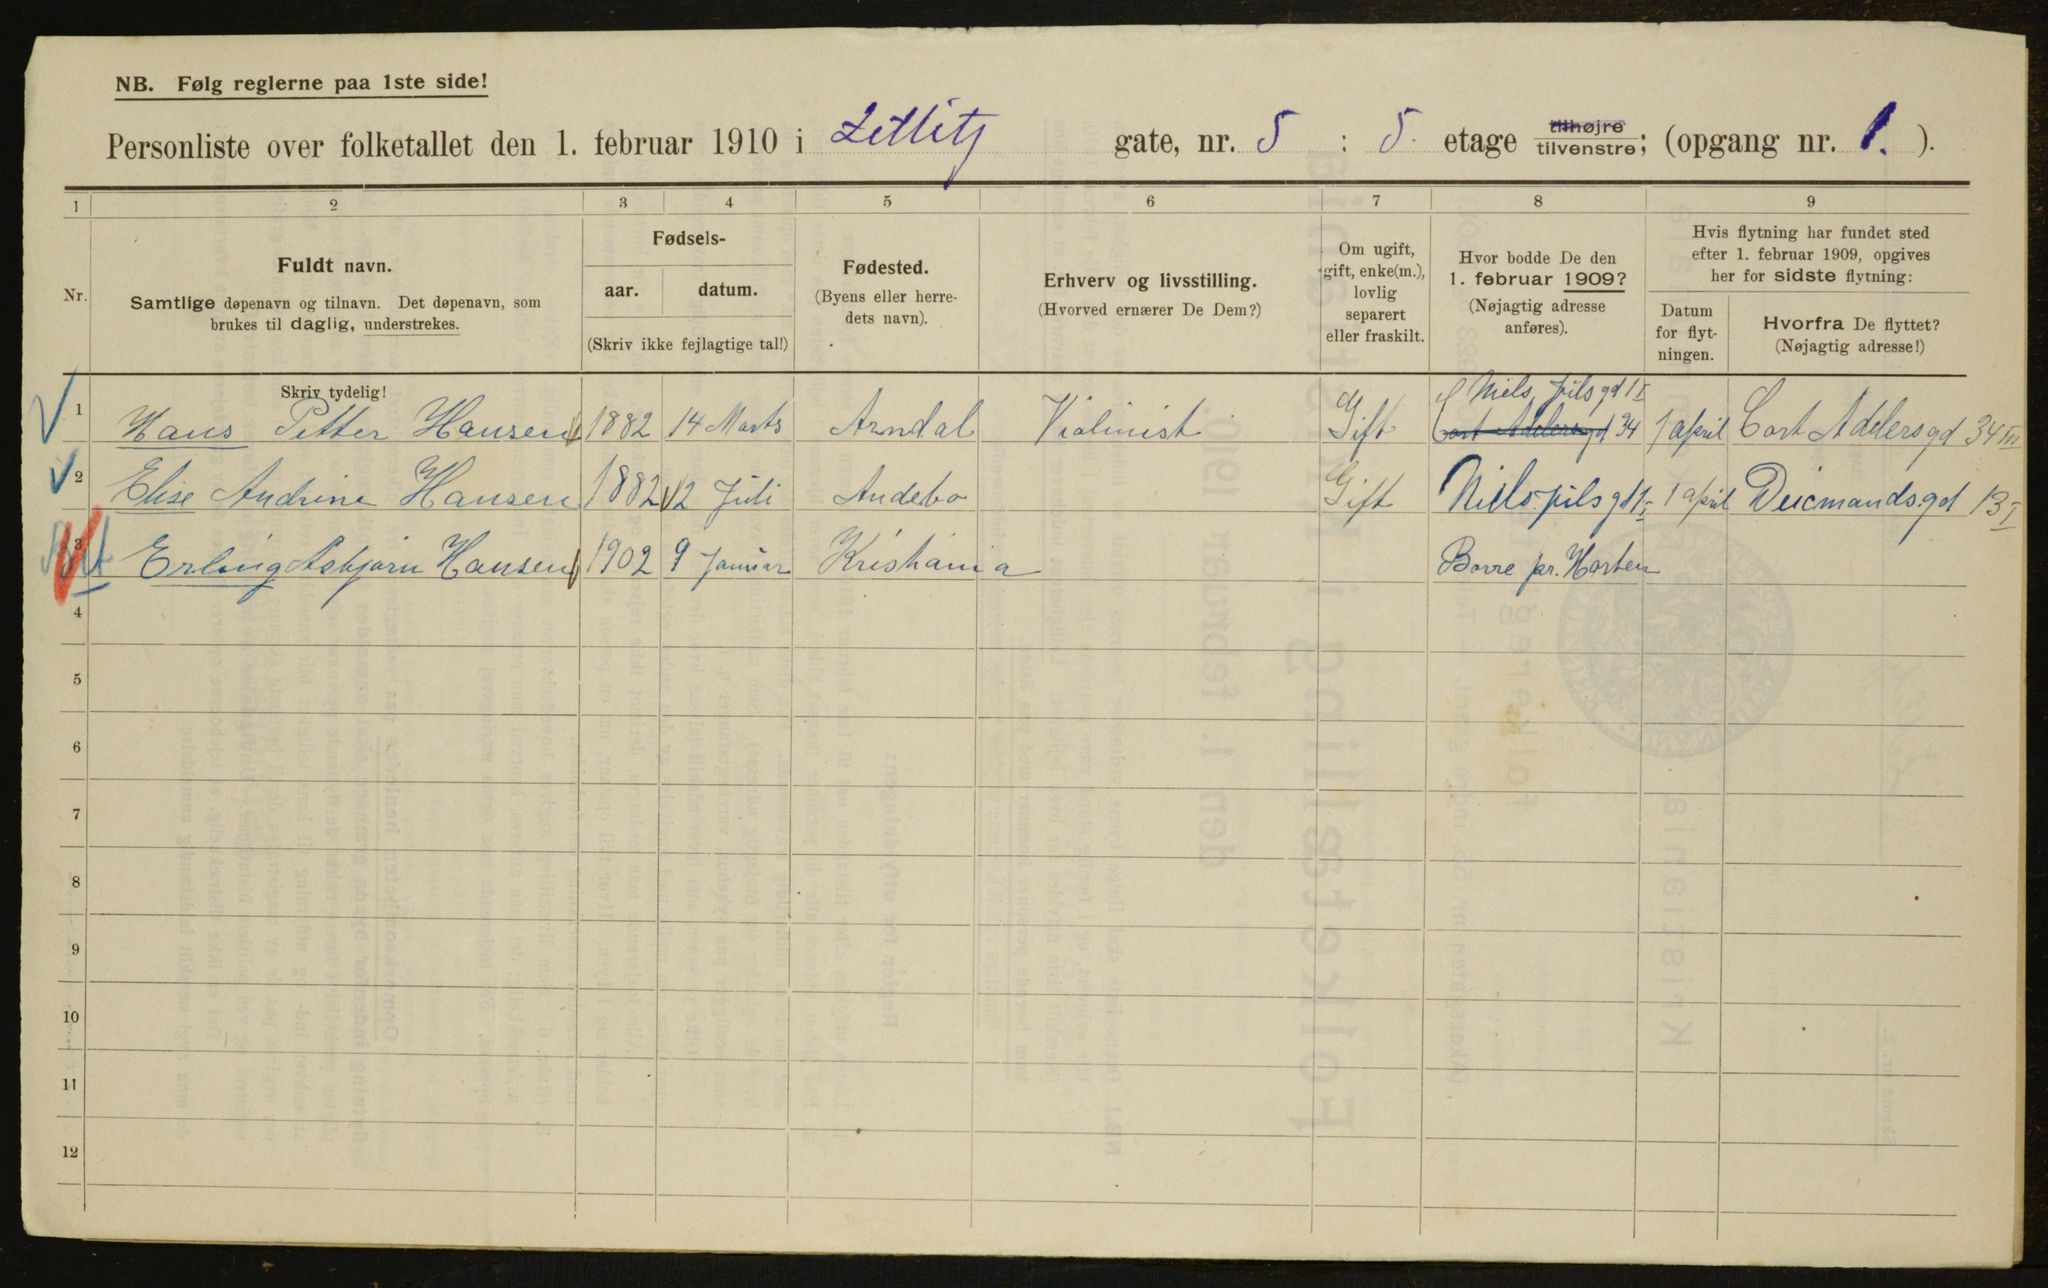 NB. Følg reglerne paa 1ste side!
Personliste over folketallet den 1. februar 1910 i Zetlitz gate, nr. 5 : 5. etage tilhøjre tilvenstre; (opgang nr. 1. ).
1 2 3 4 5 6 7 8 9
Nr.
Fuldt navn.
Samtlige døpenavn og tilnavn. Det døpenavn, som
brukes til daglig, understrekes.
Fødsels-
aar. datum.
(Skriv ikke fejlagtige tal!)
Fødested.
(Byens eller herre-
dets navn).
Erhverv og livsstilling.
(Hvorved ernærer De Dem?)
Om ugift,
gift, enke(m.),
lovlig
separert
eller fraskilt.
Hvor bodde De den
1. februar 1909?
(Nøjagtig adresse
anføres).
Hvis flytning har fundet sted
efter 1. februar 1909, opgives
her for sidste flytning:
Datum
for flyt-
ningen.
Hvorfra De flyttet?
(Nøjagtig adresse!)
Skriv tydelig!
Niels Juls gd 1 I
1 Hans Petter Hansen 1882 14 Marts Arndal Violinist Gift Cort Adelersgd 34 1 april Cort Adlersgd 34 III
2 Elise Andrine Hansen 1882 12 Juli Andebo Gift Niels Juls gd 1 I 1 april Deicmandsgd 13 I
3 Erling Asbjørn Hansen 1902 9 Januar Kristiania Borre pr. Horten
4
5
6
7
8
9
10
11
12